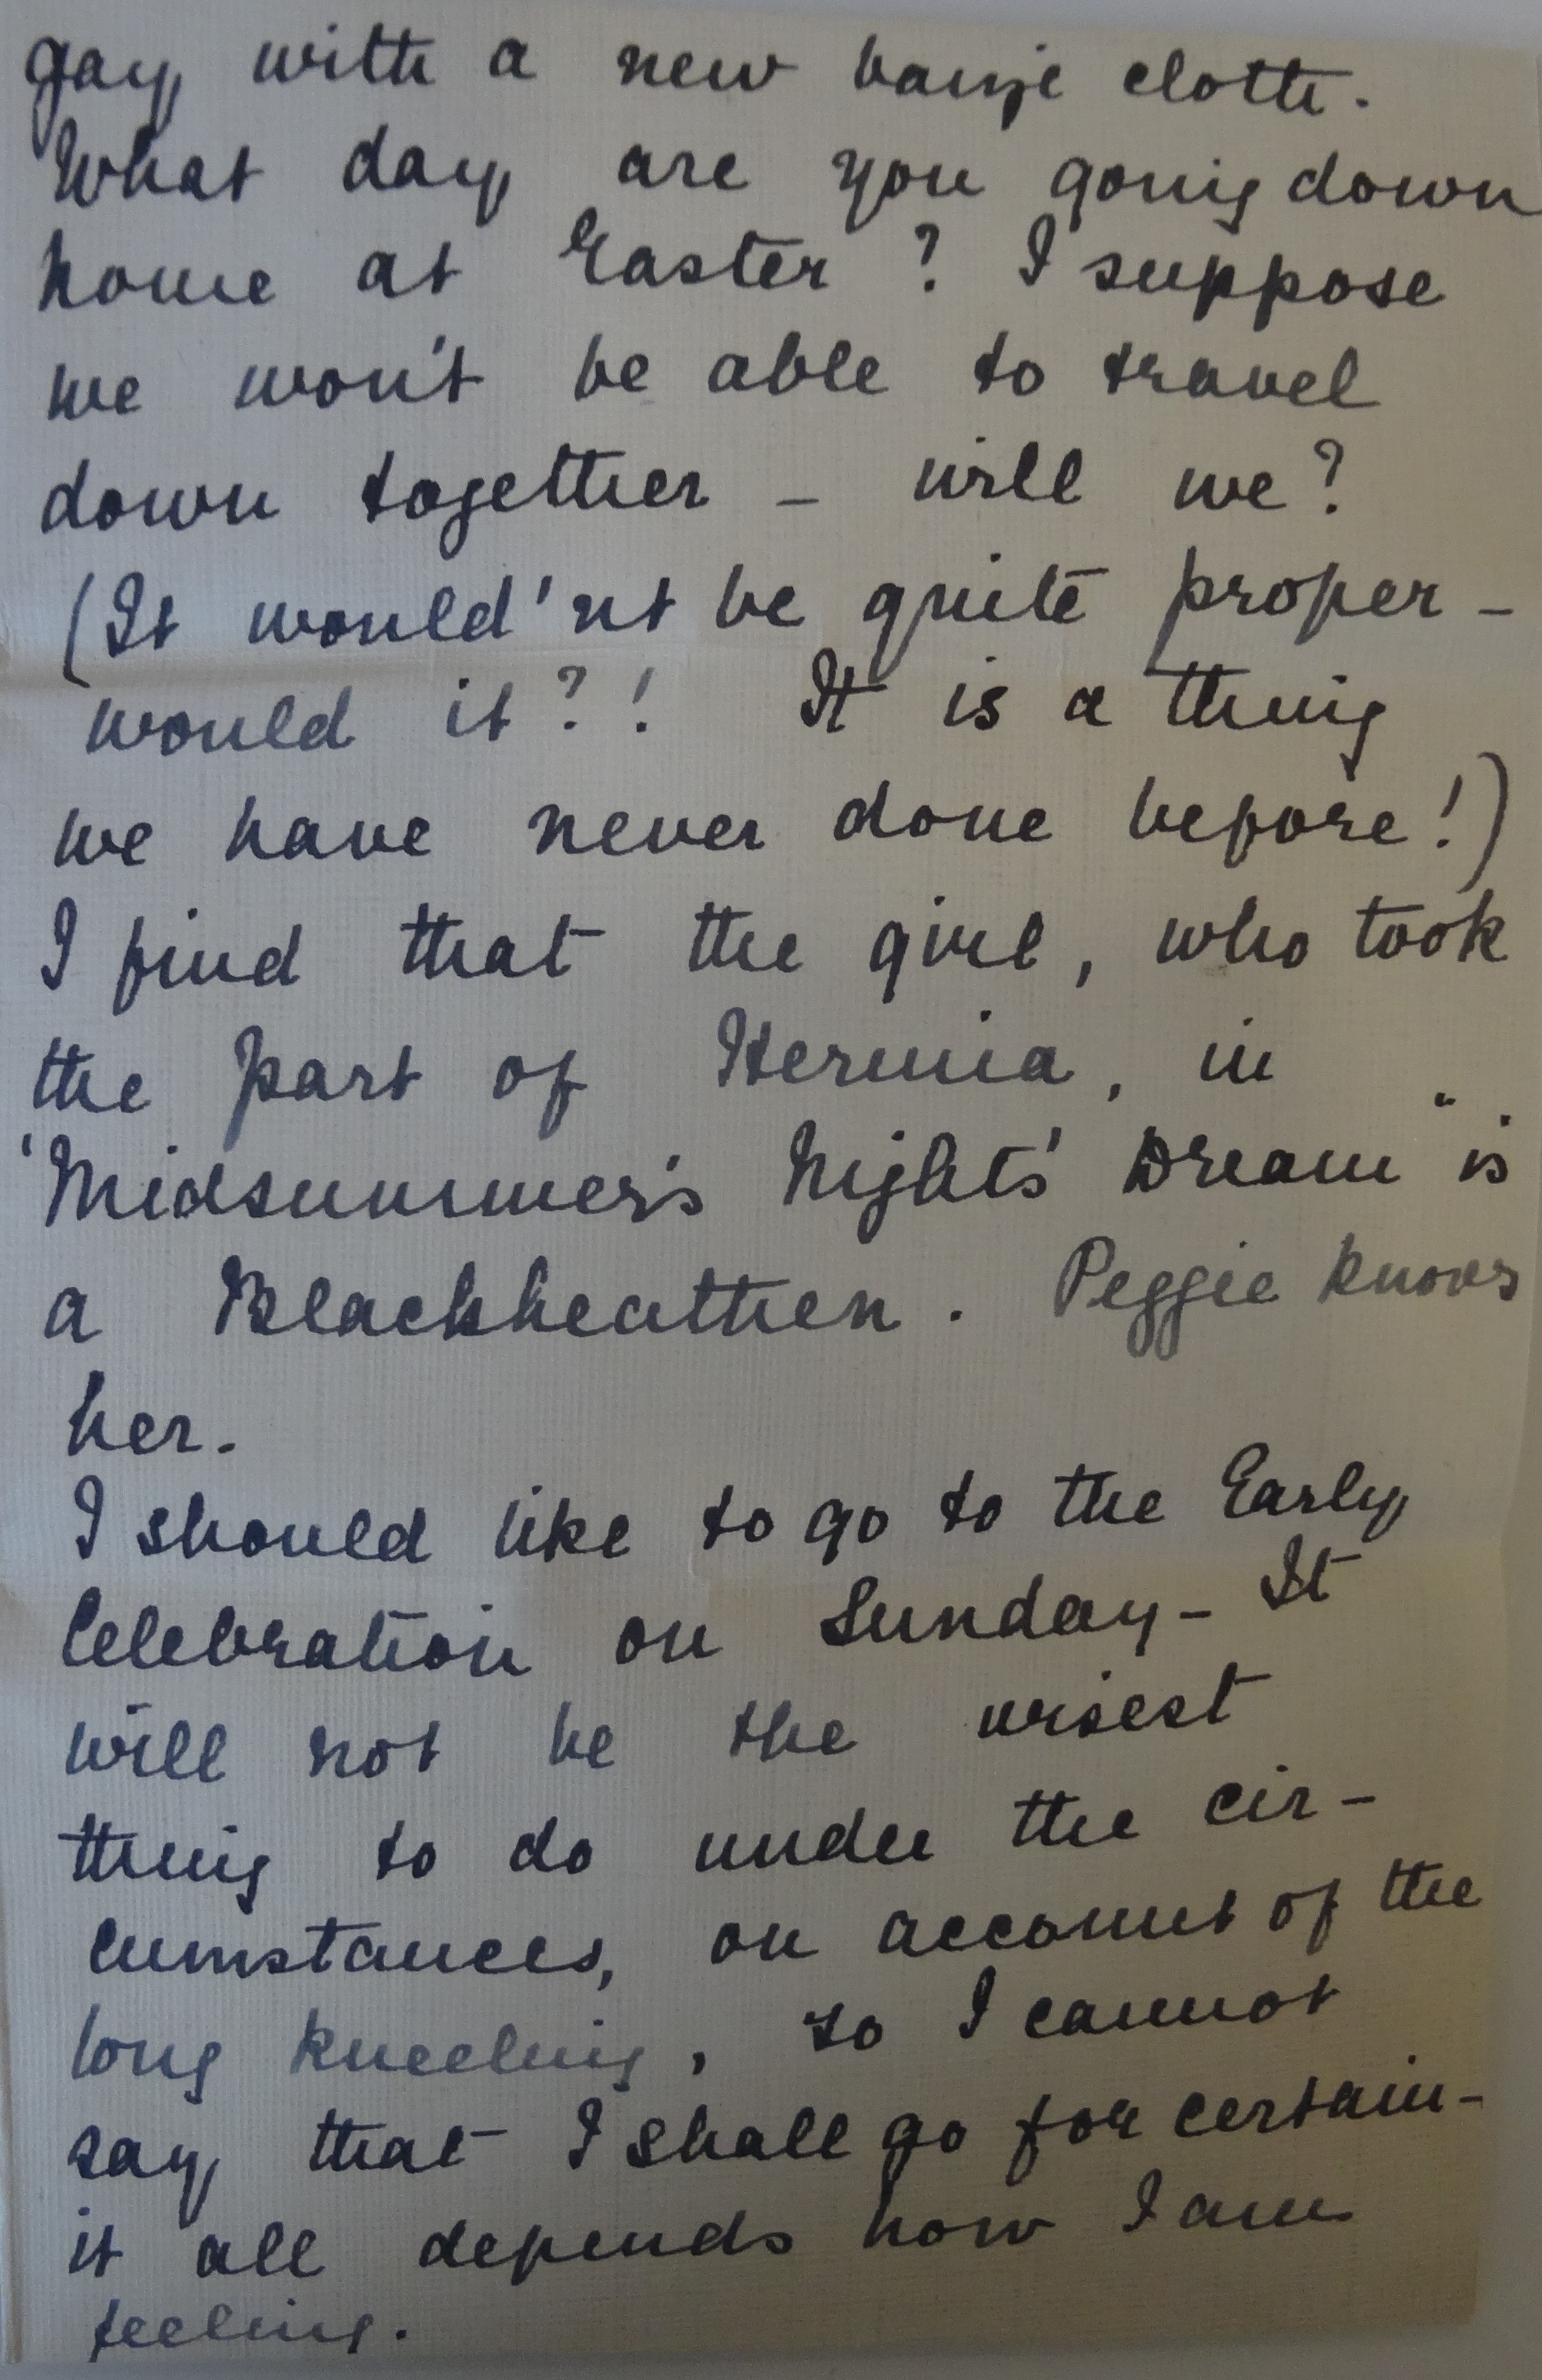 gay with a new baize cloth.
What day are you going down
home at Easter? I suppose
we won't be able to travel
down together – will we?
(It would'nt be quite proper –
would it?! It is a thing
we have never done before!)
I find that the girl, who took
the part of Hermia, in
'Midsummer's Nights' Dream" is
a Blackheathen. Peggie knows
her.
I should like to go to the Early
Celebration on Sunday – It
will not be the wisest
thing to do under the cir-
cumstances, on account of the
long kneeling, so I cannot
say that I shall go for certain –
it all depends how I am
feeling.